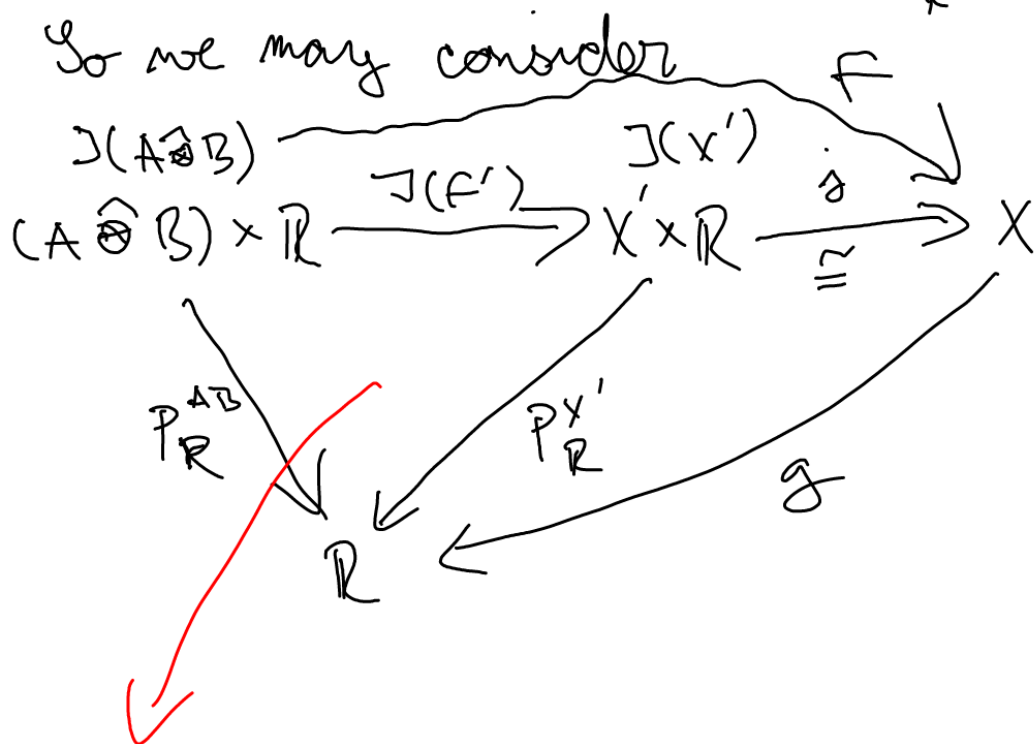 So we may consider
F
J(A ⊗̂ B)
J(X')
(A ⊗̂ B) × ℝ
J(F')
X' × ℝ
j
≅
X
P_ℝ^{AB}
P_ℝ^{X'}
g
ℝ